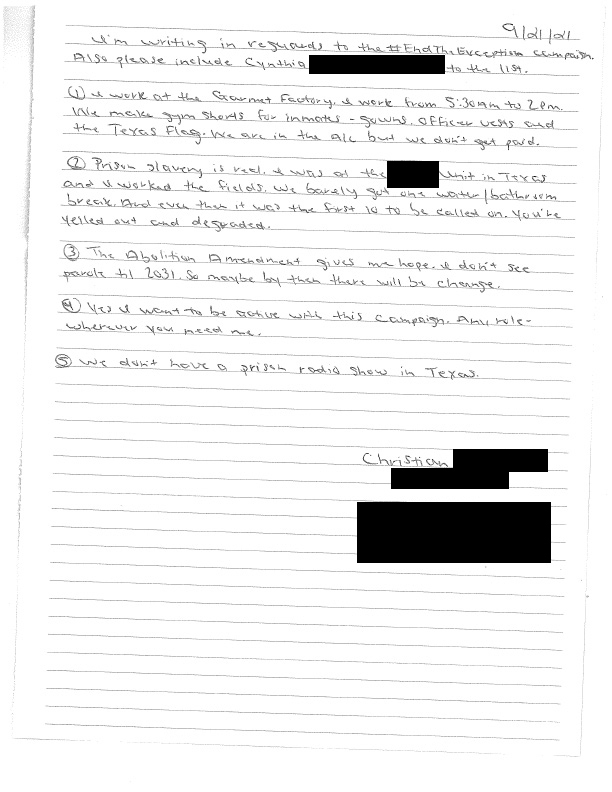 9/21/21
I'm writing in reguards to the #EndTheException campaign.
Also please include Cynthia to the list.
① I work at the Garmet Factory. I work from 5:30am to 2pm.
We make gym shorts for inmates - gowns. Officer vests and
the Texas Flag. We are in the A/c but we don't get paid.
② Prison slavery is real. I was at the Unit in Texas
and I worked the fields. We barely got one water/bathroom
break. And even then it was the first 10 to be called on. You're
yelled out and degraded.
③ The Abolition Amendment gives me hope. I don't see
parole til 2031. So maybe by then there will be change.
④ Yes I want to be active with this campaign. Any role-
wherever you need me.
⑤ We don't have a prison radio show in Texas.
Christian